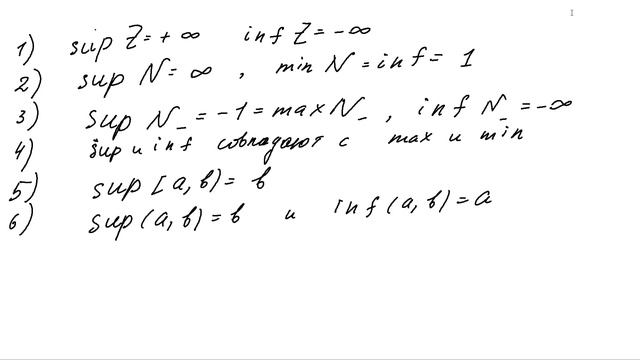 1) sup Z = + ∞ inf Z = -∞
2) sup N = ∞ , min N = inf = 1
3) sup N_ = -1 = max N_ , inf N_ = -∞
4) sup и inf совпадают с max и min
5) sup [a, b) = b
6) sup (a, b) = b и inf (a, b) = a